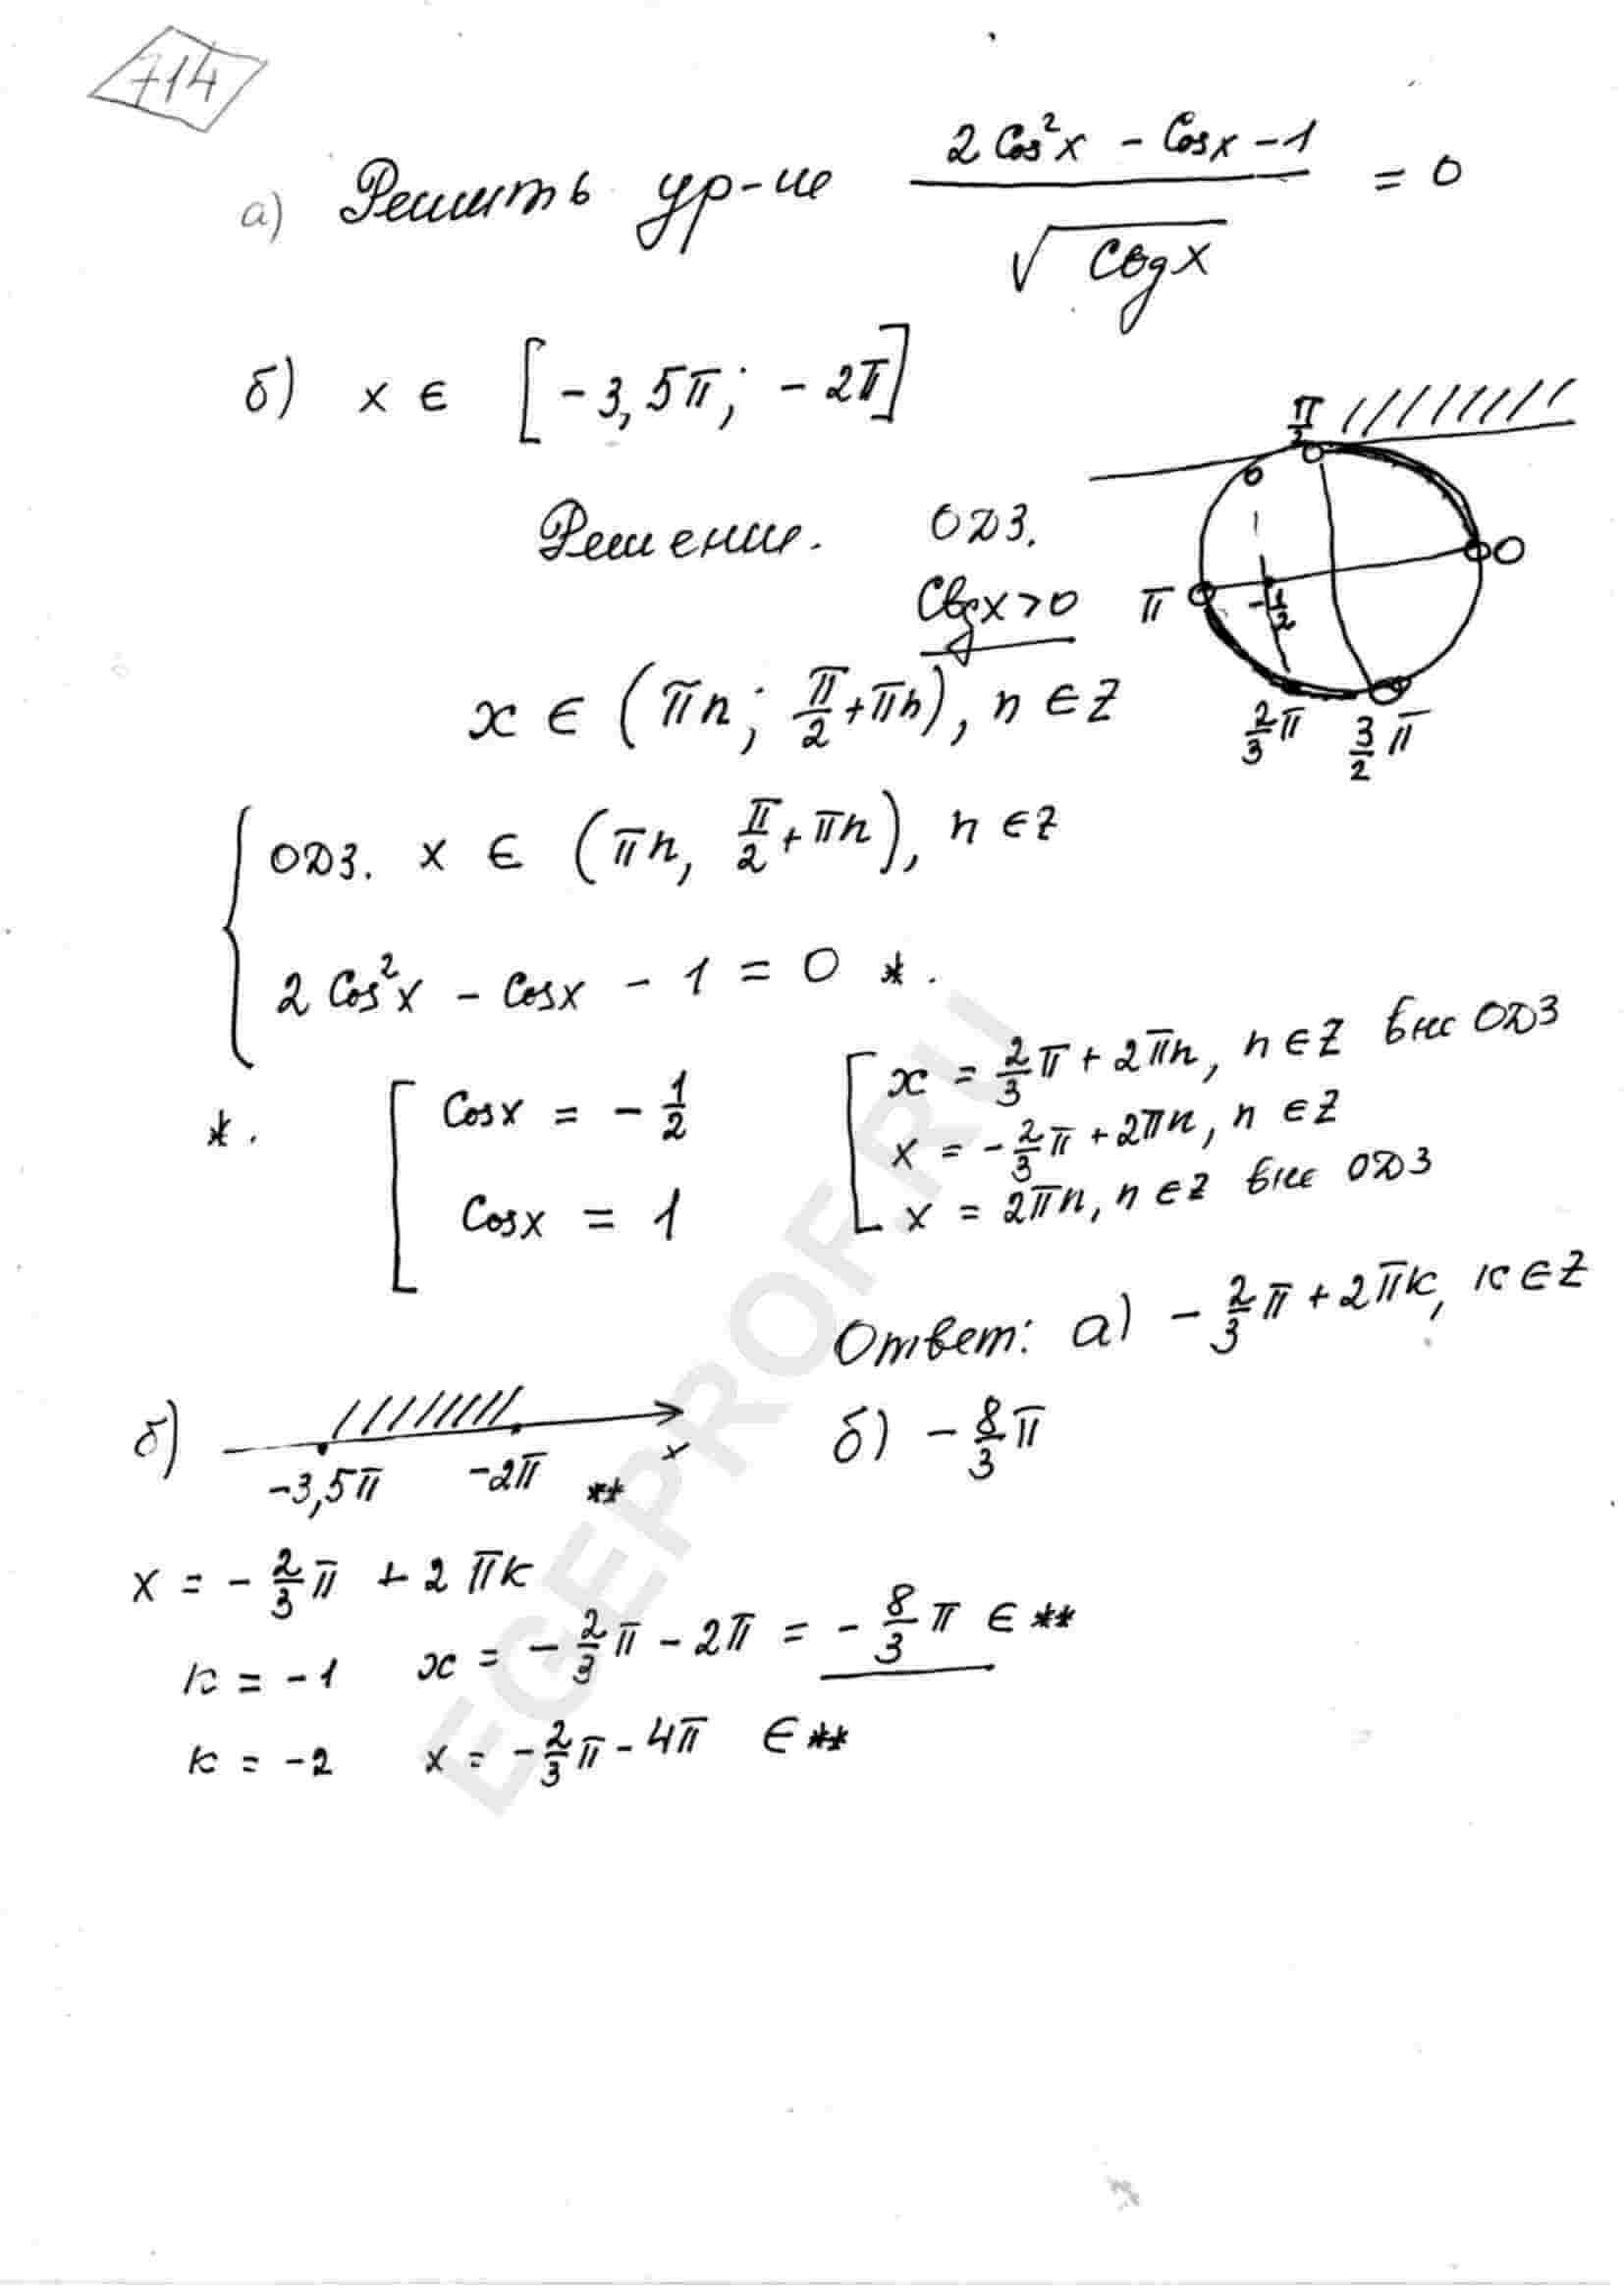 714
а) Решить ур-ие (2 Cos²x - Cosx - 1)/√(Ctgx) = 0
б) x ∈ [-3,5π; -2π]
Решение. ОДЗ.
Ctgx > 0
x ∈ (πn; π/2 + πn), n ∈ Z
π/2
0
π
-1/2
2/3 π
3/2 π
{ ОДЗ. x ∈ (πn, π/2 + πn), n ∈ Z
2 Cos²x - Cosx - 1 = 0 *.
*. [ Cosx = -1/2
Cosx = 1
[ x = 2/3 π + 2πn, n ∈ Z вне ОДЗ
x = -2/3 π + 2πn, n ∈ Z
x = 2πn, n ∈ Z вне ОДЗ
Ответ: а) -2/3 π + 2πk, k ∈ Z
б) -8/3 π
б) -3,5π -2π ** x
x = -2/3 π + 2πk
k = -1 x = -2/3 π - 2π = -8/3 π ∈ **
k = -2 x = -2/3 π - 4π ∈ **
EGEPROF.RU